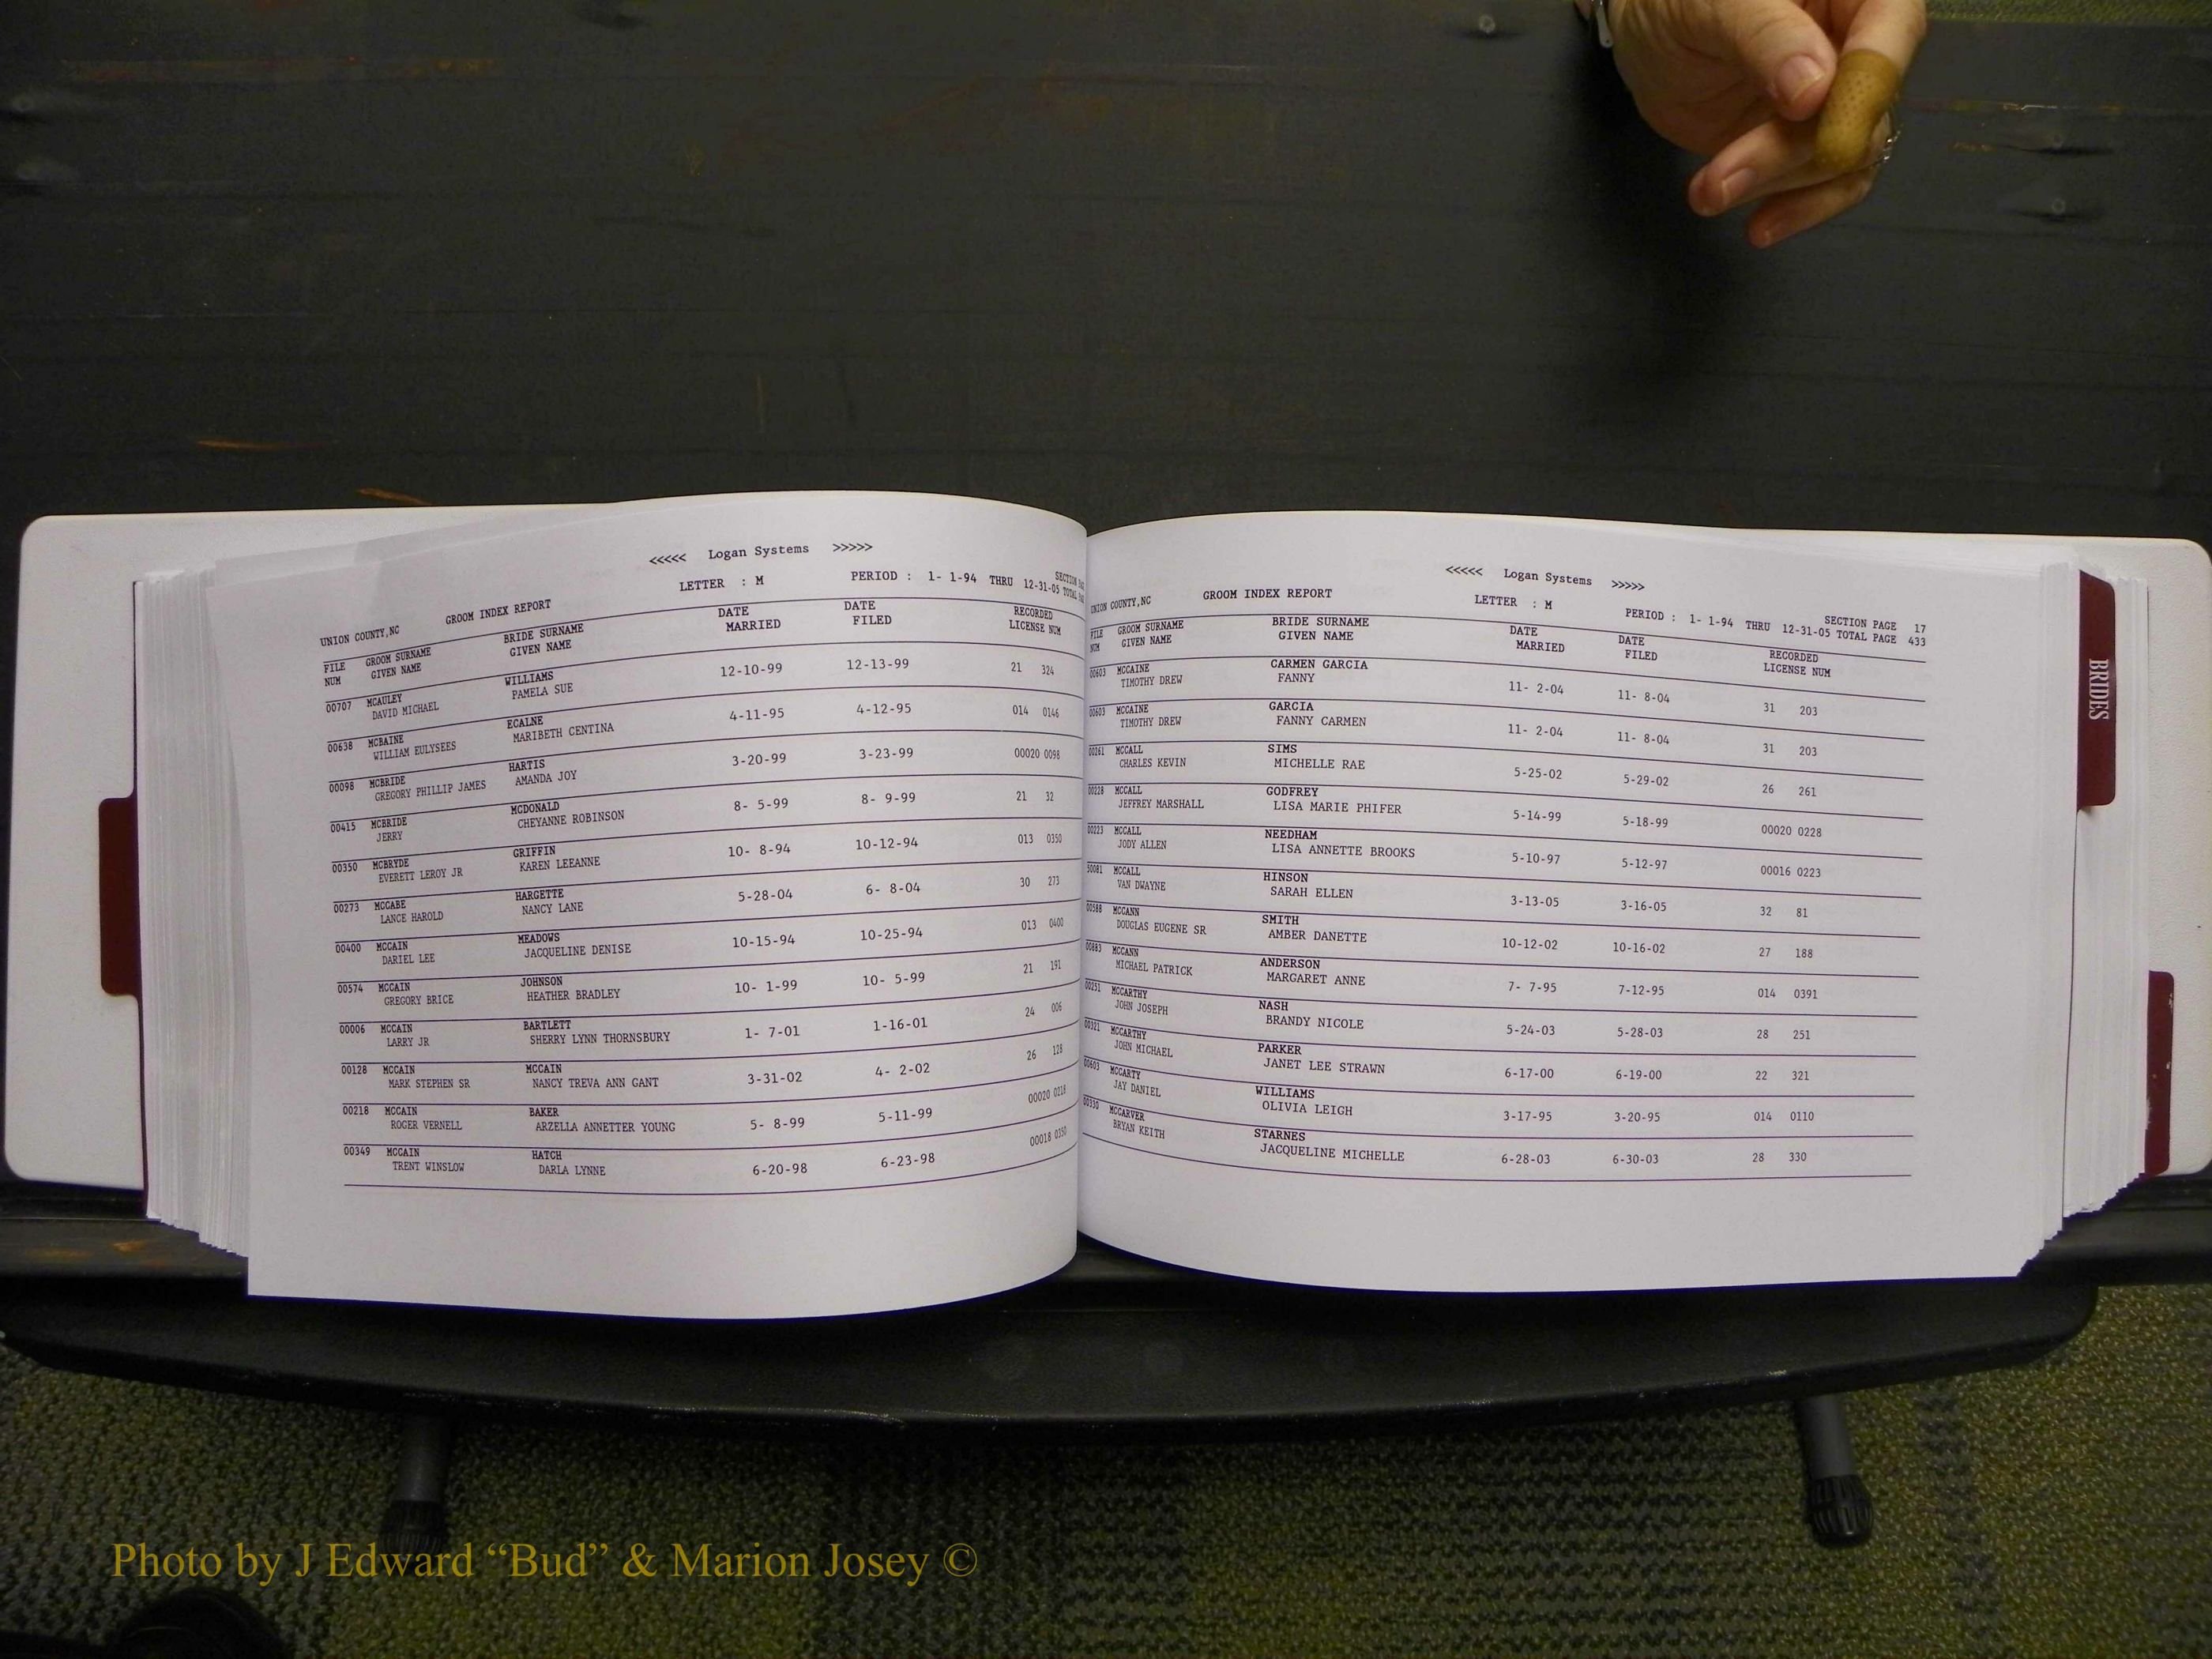 <<<<< Logan Systems >>>>>
UNION COUNTY,NC GROOM INDEX REPORT LETTER : M PERIOD : 1- 1-94 THRU 12-31-05 TOTAL
SECTION
FILE GROOM SURNAME BRIDE SURNAME DATE DATE RECORDED
NUM GIVEN NAME GIVEN NAME MARRIED FILED LICENSE NUM
00707 MCAULEY WILLIAMS 12-10-99 12-13-99 21 324
DAVID MICHAEL PAMELA SUE
00638 MCBAINE ECALNE 4-11-95 4-12-95 014 0146
WILLIAM EULYSEES MARIBETH CENTINA
00098 MCBRIDE HARTIS 3-20-99 3-23-99 00020 0098
GREGORY PHILLIP JAMES AMANDA JOY
00415 MCBRIDE MCDONALD 8- 5-99 8- 9-99 21 32
JERRY CHEYANNE ROBINSON
00350 MCBRYDE GRIFFIN 10- 8-94 10-12-94 013 0350
EVERETT LEROY JR KAREN LEEANNE
00273 MCCABE HARGETTE 5-28-04 6- 8-04 30 273
LANCE HAROLD NANCY LANE
00400 MCCAIN MEADOWS 10-15-94 10-25-94 013 0400
DARIEL LEE JACQUELINE DENISE
00574 MCCAIN JOHNSON 10- 1-99 10- 5-99 21 191
GREGORY BRICE HEATHER BRADLEY
00006 MCCAIN BARTLETT 1- 7-01 1-16-01 24 006
LARRY JR SHERRY LYNN THORNSBURY
00128 MCCAIN MCCAIN 3-31-02 4- 2-02 26 128
MARK STEPHEN SR NANCY TREVA ANN GANT
00218 MCCAIN BAKER 5- 8-99 5-11-99 00020 0218
ROGER VERNELL ARZELLA ANNETTER YOUNG
00349 MCCAIN HATCH 6-20-98 6-23-98 00018
TRENT WINSLOW DARLA LYNNE
<<<<< Logan Systems >>>>>
UNION COUNTY,NC GROOM INDEX REPORT LETTER : M PERIOD : 1- 1-94 THRU 12-31-05 TOTAL PAGE 433
SECTION PAGE 17
FILE GROOM SURNAME BRIDE SURNAME DATE DATE RECORDED
NUM GIVEN NAME GIVEN NAME MARRIED FILED LICENSE NUM
00603 MCCAINE CARMEN GARCIA 11- 2-04 11- 8-04 31 203
TIMOTHY DREW FANNY
00603 MCCAINE GARCIA 11- 2-04 11- 8-04 31 203
TIMOTHY DREW FANNY CARMEN
00261 MCCALL SIMS 5-25-02 5-29-02 26 261
CHARLES KEVIN MICHELLE RAE
00228 MCCALL GODFREY 5-14-99 5-18-99 00020 0228
JEFFREY MARSHALL LISA MARIE PHIFER
00223 MCCALL NEEDHAM 5-10-97 5-12-97 00016 0223
JODY ALLEN LISA ANNETTE BROOKS
50081 MCCALL HINSON 3-13-05 3-16-05 32 81
VAN DWAYNE SARAH ELLEN
00588 MCCANN SMITH 10-12-02 10-16-02 27 188
DOUGLAS EUGENE SR AMBER DANETTE
00883 MCCANN ANDERSON 7- 7-95 7-12-95 014 0391
MICHAEL PATRICK MARGARET ANNE
00251 MCCARTHY NASH 5-24-03 5-28-03 28 251
JOHN JOSEPH BRANDY NICOLE
00321 MCCARTHY PARKER 6-17-00 6-19-00 22 321
JOHN MICHAEL JANET LEE STRAWN
00603 MCCARTY WILLIAMS 3-17-95 3-20-95 014 0110
JAY DANIEL OLIVIA LEIGH
00330 MCCARVER STARNES 6-28-03 6-30-03 28 330
BRYAN KEITH JACQUELINE MICHELLE
BRIDES
Photo by J Edward “Bud” & Marion Josey ©